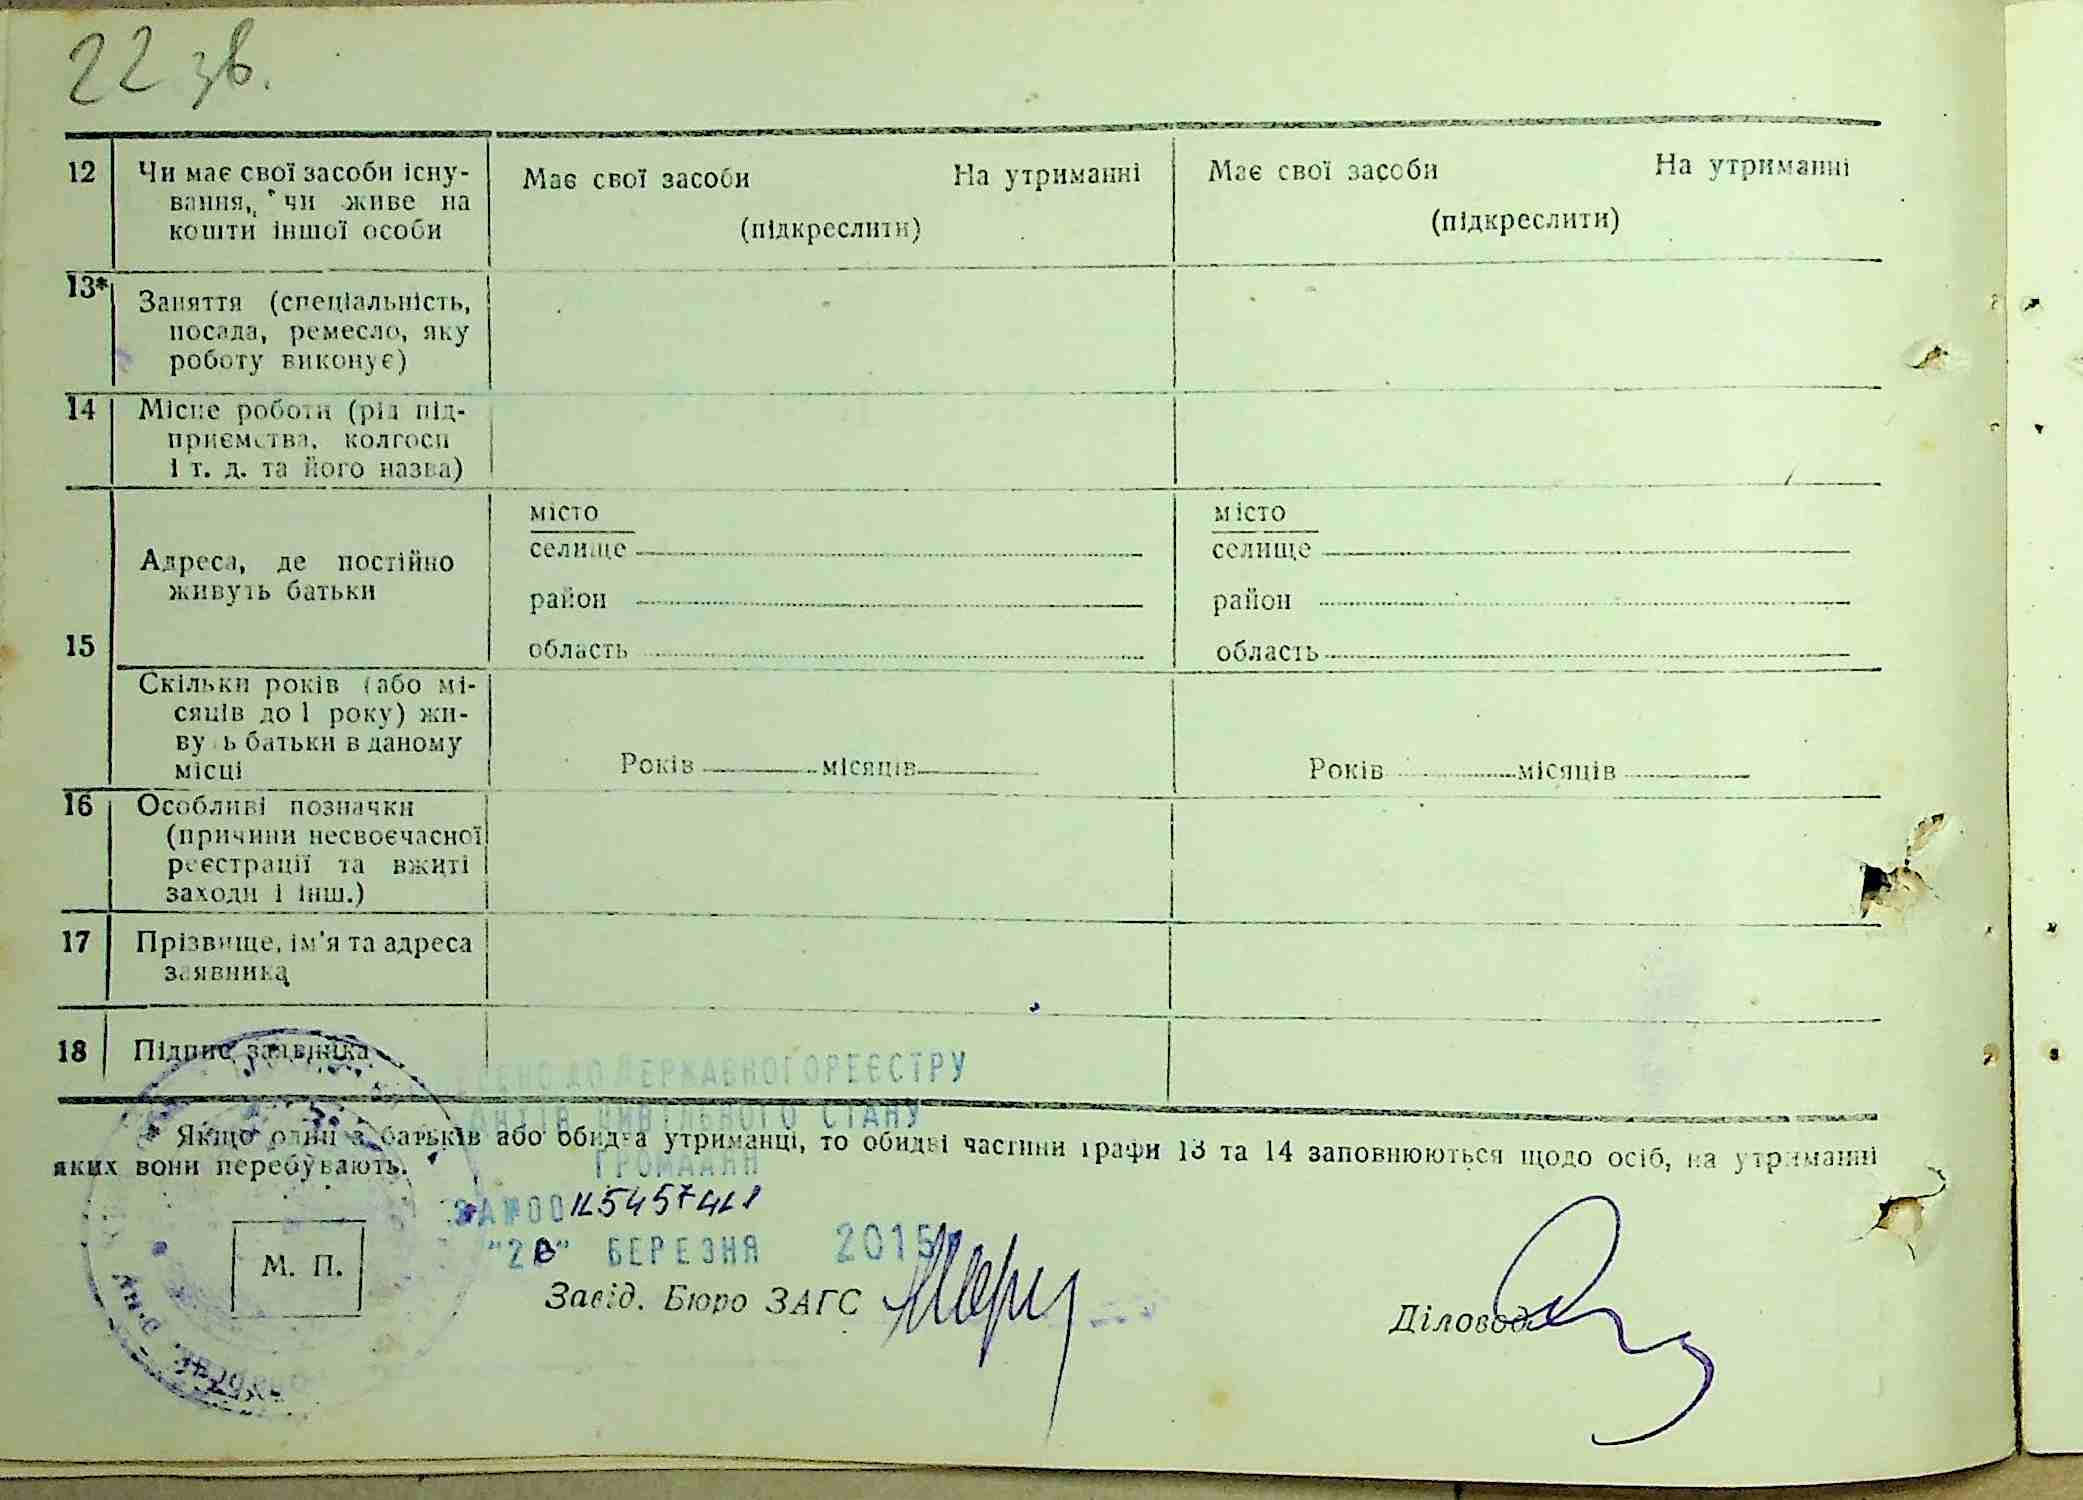 22 зв.
12 Чи має свої засоби існу- Має свої засоби На утриманні Має свої засоби На утриманні
вання, чи живе на (підкреслити) (підкреслити)
кошти іншої особи
13* Заняття (спеціальність,
посада, ремесло, яку
роботу виконує)
14 Місце роботи (рід під-
приємства, колгосп
і т. д. та його назва)
місто місто
селище селище
Адреса, де постійно
живуть батьки
район район
15
область область
Скільки років (або мі-
сяців до 1 року) жи-
вуть батьки в даному
місці
Років місяців Років місяців
16 Особливі позначки
(причини несвоєчасної
реєстрації та вжиті
заходи і інш.)
17 Прізвище, ім'я та адреса
заявника
18 Підпис заявника
ДО ДЕРЖАВНОГО РЕЄСТРУ
АКТІВ ЦИВІЛЬНОГО СТАНУ
* Якщо один з батьків або обидва утриманці, то обидві частини графи 13 та 14 заповнюються щодо осіб, на утриманні
яких вони перебувають.
ГРОМАДЯН
ЗА №00
БЕРЕЗНЯ 2015
М. П.
Завід. Бюро ЗАГС
Діловод